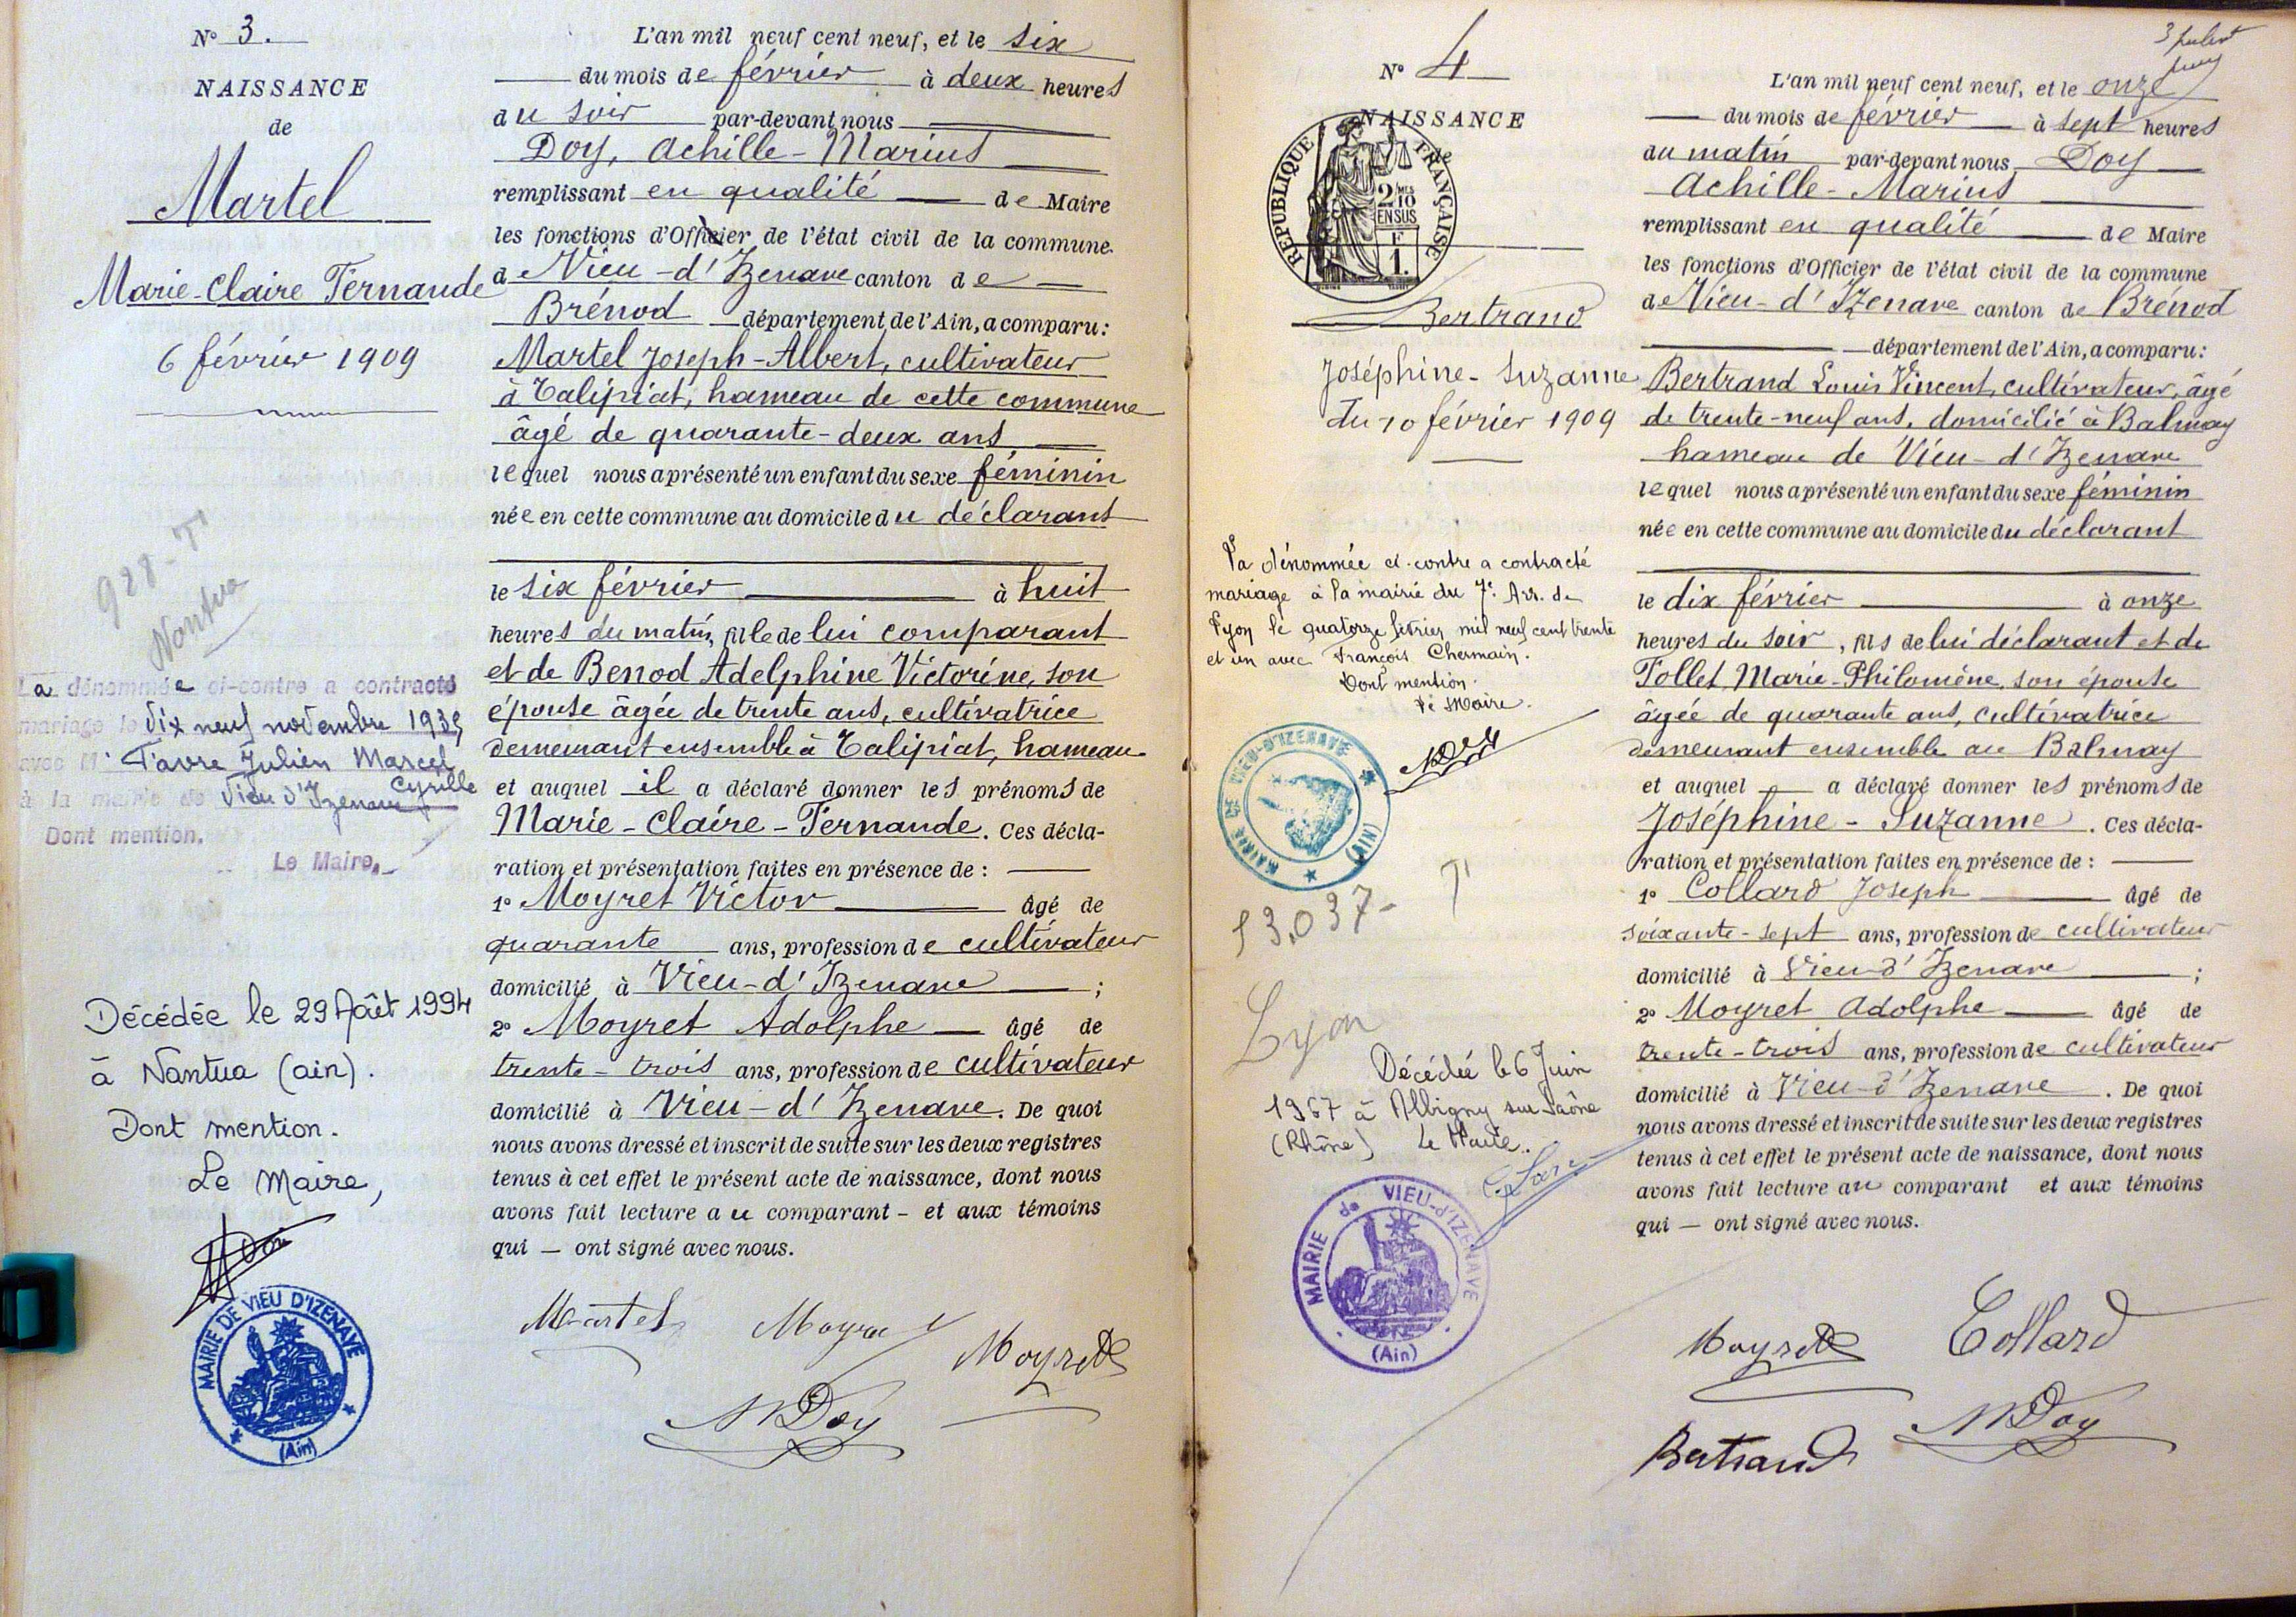 N° 3.
NAISSANCE
de
Martel
Marie-Claire Fernande
6 février 1909
928-T
Nantua
La dénommée ci-contre a contracté
mariage le dix neuf novembre 1935
avec M. Favre Julien Marcel
Cyrille
à la mairie de Vieu d'Izenave
Dont mention.
Le Maire,
Décédée le 29 Août 1994
à Nantua (ain).
Dont mention.
Le Maire,
MAIRIE DE VIEU D'IZENAVE
(Ain)
L'an mil neuf cent neuf, et le six
du mois de février à deux heures
du soir par-devant nous
Doy, Achille-Marius
remplissant en qualité de Maire
les fonctions d'Officier de l'état civil de la commune
de Vieu-d'Izenave canton de
Brénod département de l'Ain, a comparu:
Martel Joseph-Albert, cultivateur
à Talipiat, hameau de cette commune
âgé de quarante-deux ans
lequel nous a présenté un enfant du sexe féminin
née en cette commune au domicile du déclarant
le six février à huit
heures du matin, fille de lui comparant
et de Benod Adelphine Victorine, son
épouse âgée de trente ans, cultivatrice
demeurant ensemble à Talipiat, hameau
et auquel il a déclaré donner les prénoms de
Marie-Claire-Fernande. Ces décla-
ration et présentation faites en présence de :
1° Moyret Victor âgé de
quarante ans, profession de cultivateur
domicilié à Vieu-d'Izenave ;
2° Moyret Adolphe âgé de
trente-trois ans, profession de cultivateur
domicilié à Vieu-d'Izenave. De quoi
nous avons dressé et inscrit de suite sur les deux registres
tenus à cet effet le présent acte de naissance, dont nous
avons fait lecture au comparant - et aux témoins
qui — ont signé avec nous.
Martel Moyret
Moyret
Doy
N° 4
NAISSANCE
de
REPUBLIQUE FRANÇAISE
2/10 MES
EN SUS
F
1.
Bertrand
Joséphine-Suzanne
du 10 février 1909
La dénommée ci-contre a contracté
mariage à la mairie du 7e Arr. de
Lyon le quatorze février mil neuf cent trente
et un avec François Chermain.
Dont mention.
Le Maire.
MAIRIE DE VIEU-D'IZENAVE
(AIN)
13.037- T
Lyon
Décédée le 6 Juin
1967 à Albigny sur Saône
(Rhône) Le Maire.
MAIRIE de VIEU-d'IZENAVE
(Ain)
L'an mil neuf cent neuf, et le onze
du mois de février à sept heures
du matin par-devant nous Doy
Achille-Marius
remplissant en qualité de Maire
les fonctions d'Officier de l'état civil de la commune
de Vieu-d'Izenave canton de Brénod
département de l'Ain, a comparu:
Bertrand Louis Vincent, cultivateur, âgé
de trente-neuf ans, domicilié à Balmay
hameau de Vieu-d'Izenave
lequel nous a présenté un enfant du sexe féminin
née en cette commune au domicile du déclarant
le dix février à onze
heures du soir, fils de lui déclarant et de
Tollet Marie-Philomène, son épouse
âgée de quarante ans, cultivatrice
demeurant ensemble au Balmay
et auquel a déclaré donner les prénoms de
Joséphine-Suzanne. Ces décla-
ration et présentation faites en présence de :
1° Collard Joseph âgé de
soixante-sept ans, profession de cultivateur
domicilié à Vieu-d'Izenave ;
2° Moyret Adolphe âgé de
trente-trois ans, profession de cultivateur
domicilié à Vieu-d'Izenave. De quoi
nous avons dressé et inscrit de suite sur les deux registres
tenus à cet effet le présent acte de naissance, dont nous
avons fait lecture au comparant et aux témoins
qui — ont signé avec nous.
Moyret Collard
Doy
Bertrand